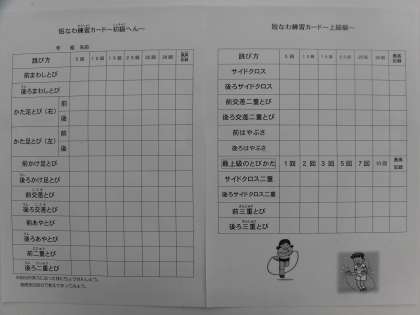 短なわ練習カード～初級へん～
年 組 名前
跳び方 5回 10回 15回 20回 25回 30回 最高記録
前まわしとび
後ろまわしとび
かた足とび（右） 前
後
かた足とび（左） 前
後
前かけ足とび
後ろかけ足とび
前交差とび
後ろ交差とび
前あやとび
後ろあやとび
前二重とび
後ろ二重とび
短なわ練習カード～上級編～
跳び方 5回 10回 15回 20回 25回 30回 最高記録
サイドクロス
後ろサイドクロス
前交差二重とび
後ろ交差二重とび
前はやぶさ
後ろはやぶさ
最上級のとびかた 1回 2回 3回 5回 7回 10回 最高記録
サイドクロス二重
後ろサイドクロス二重
前三重とび
後ろ三重とび